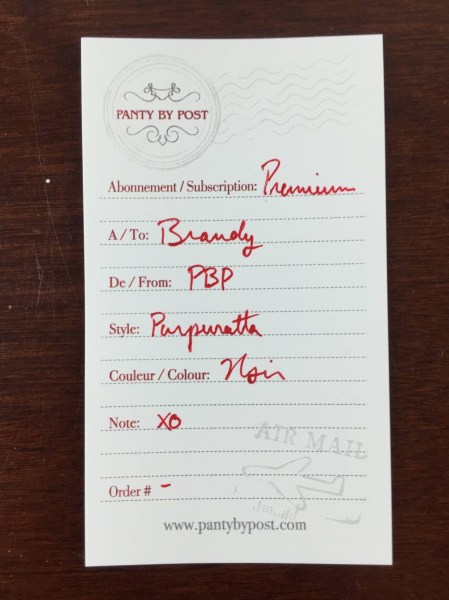 PANTY BY POST
Abonnement / Subscription: Premium
A / To: Brandy
De / From: PBP
Style: Purpuratta
Couleur / Colour: Noir
Note: XO
AIR MAIL
Order # -
www.pantybypost.com